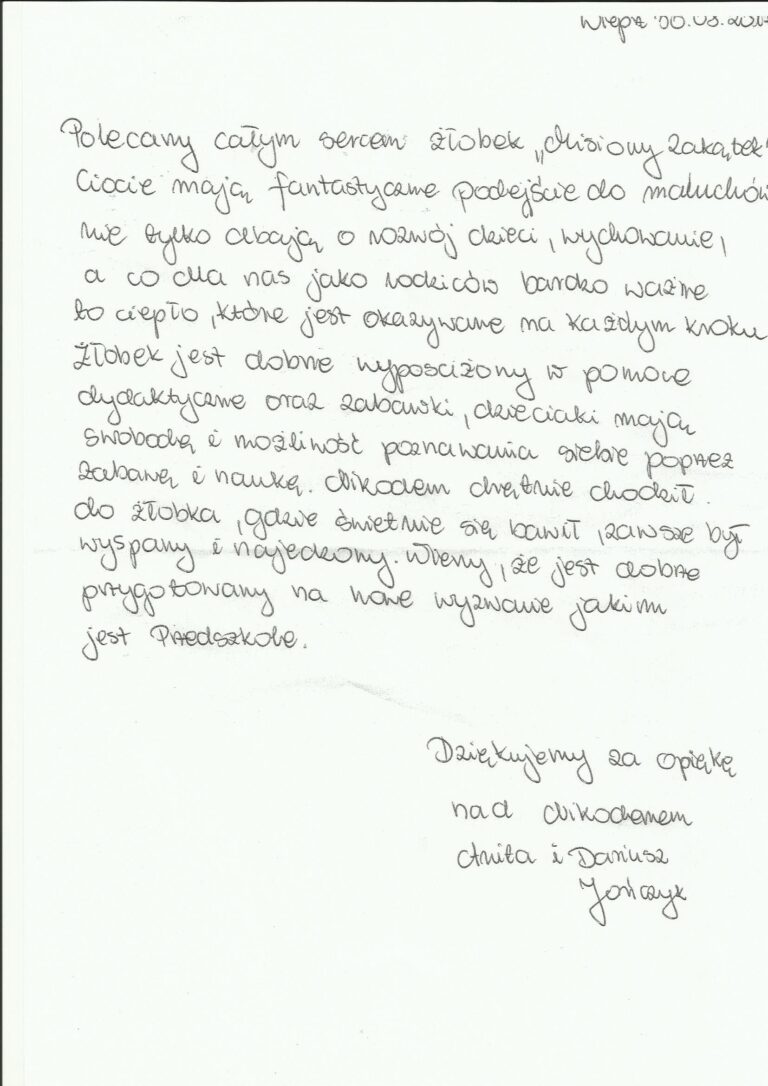 Wieprz
Polecamy całym sercem żłobek „Misiowy Zakątek"
Ciocie mają fantastyczne podejście do maluchów
nie tylko dbają o rozwój dzieci, wychowanie,
a co dla nas jako rodziców bardzo ważne
to ciepło, które jest okazywane na każdym kroku
Żłobek jest dobrze wyposażony w pomoce
dydaktyczne oraz zabawki, dzieciaki mają
swobodę i możliwość poznawania siebie poprzez
zabawę i naukę. Nikodem chętnie chodził
do żłobka, gdzie świetnie się bawił, zawsze był
wyspany i najedzony. Wiemy, że jest dobrze
przygotowany na nowe wyzwanie jakim
jest Przedszkole.
Dziękujemy za opiekę
nad Nikodemem
Anita i Dariusz
Jończyk